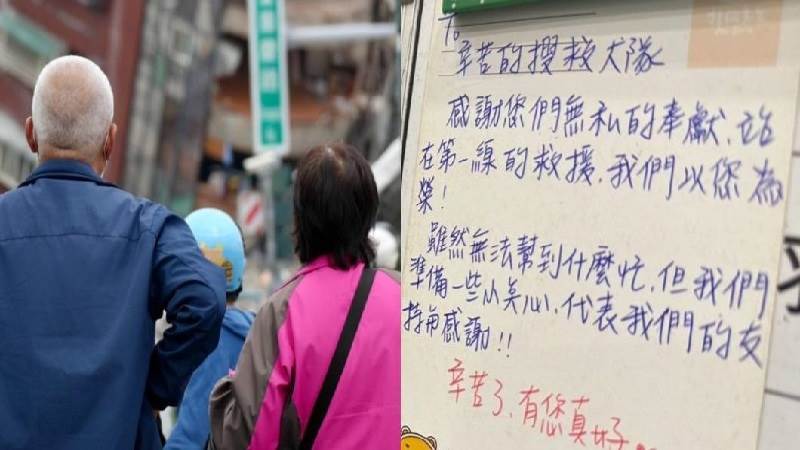 To
辛苦的搜救犬隊
感謝您們無私的奉獻，站
在第一線的救援，我們以您為
榮！
雖然無法幫到什麼忙，但我們
準備一些小美心，代表我們的支
持與感謝！！
辛苦了，有您真好